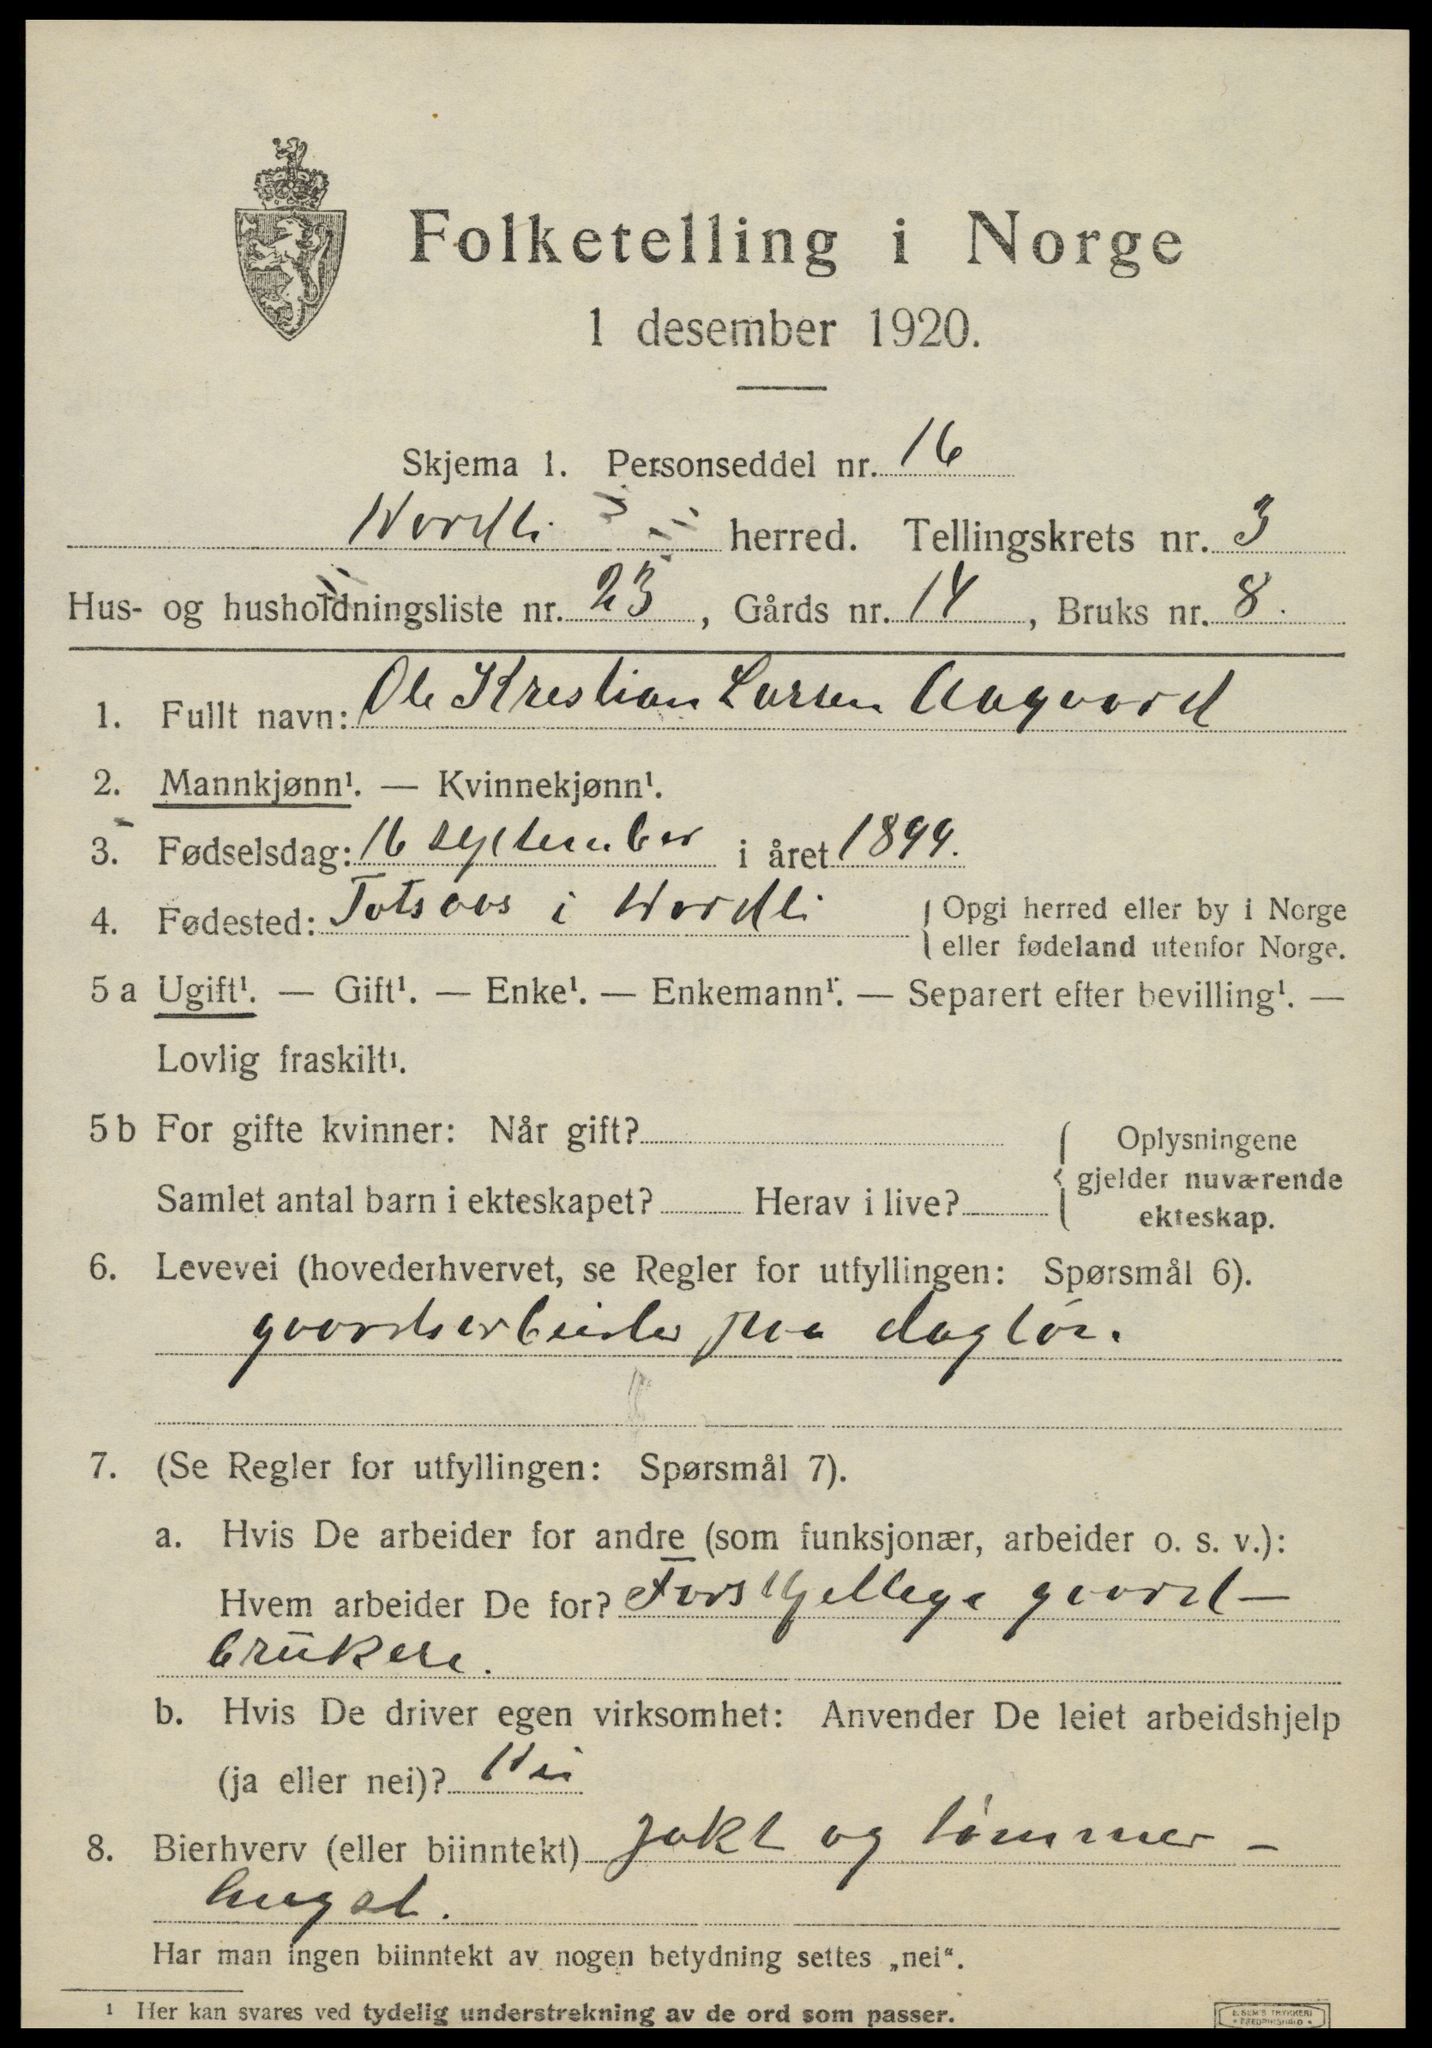 Folketelling i Norge
1 desember 1920.
Skjema 1. Personseddel nr. 16
Nordli herred. Tellingskrets nr. 3
Hus- og husholdningsliste nr. 23, Gårds nr. 14, Bruks nr. 8.
1. Fullt navn: Ole Kristian Larsen Aagaard
2. Mannkjønn¹. — Kvinnekjønn¹.
3. Fødselsdag: 16 september i året 1899.
4. Fødested: Totsaas i Nordli { Opgi herred eller by i Norge
eller fødeland utenfor Norge.
5 a Ugift¹. — Gift¹. — Enke¹. — Enkemann¹. — Separert efter bevilling¹. —
Lovlig fraskilt¹.
5 b For gifte kvinner: Når gift? { Oplysningene
gjelder nuværende
Samlet antal barn i ekteskapet? Herav i live? ekteskap.
6. Levevei (hovederhvervet, se Regler for utfyllingen: Spørsmål 6).
gaardsarbeider paa dagløn.
7. (Se Regler for utfyllingen: Spørsmål 7).
a. Hvis De arbeider for andre (som funksjonær, arbeider o. s. v.):
Hvem arbeider De for? Forskjellege gaard-
brukere.
b. Hvis De driver egen virksomhet: Anvender De leiet arbeidshjelp
(ja eller nei)? Nei
8. Bierhverv (eller biinntekt) jakt og tømmer-
hugst.
Har man ingen biinntekt av nogen betydning settes „nei“.
¹ Her kan svares ved tydelig understrekning av de ord som passer.
E. SEM'S TRYKKERI
• FREDRIKSHALD •